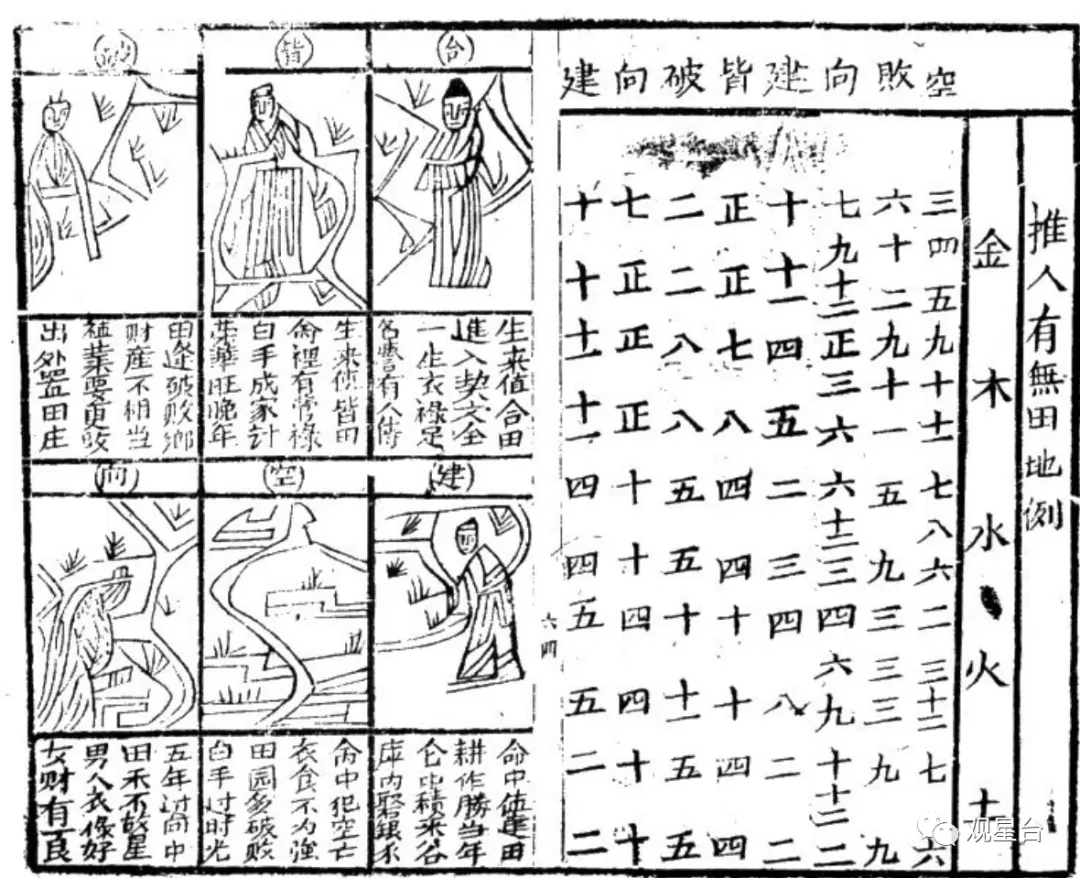 推人有無田地例
金木水火土
空敗向建皆破向建
三四五九十十二七八六二三十二七六
六十二九十一五九三三三九九
七九十二正三六六十二三四六九十十二二
十十一四五二三四八二二
正正七八四四十十四四
二二八八五五十十一五五
七正正正十十四四十十
十十十一十一四四五五二二
六四
台
生来值合田
進入契文全
一生衣祿足
名譽有人傳
皆
生来值皆田
命裡有營祿
白手成家計
荣華旺晚年
破
田逢破敗鄉
财產不相当
祖業要更改
出处置田庄
建
命中值建田
耕作勝当年
仓中積米谷
库内聚銀
空
命中犯空亡
衣食不为強
田园多破敗
白手过时光
向
五年过向中
田禾不發星
男人衣祿好
女财有良
观星台